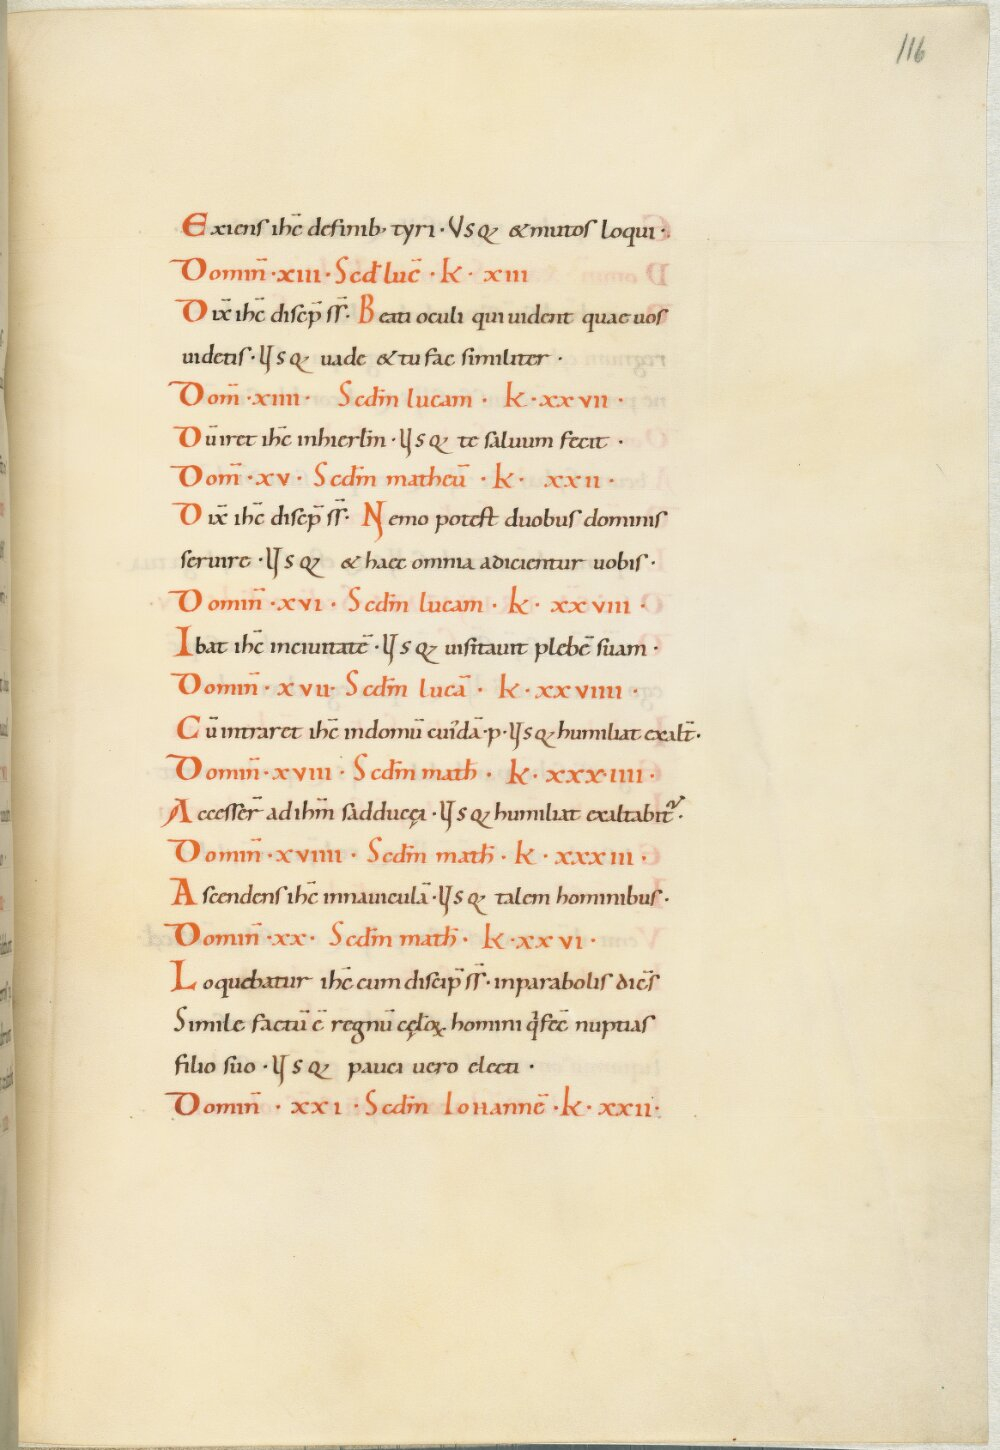 116
Exiens ihc̄ definib· tyri · Vsq; & mutos loqui ·
Domin̄ · xiii · Scd̄ luc̄ · k · xiii
Dix̄ ihc̄ discip̄ ss̄ · Beati oculi qui uident quae uos
uidetis · Usq; uade & tu fac similiter ·
Dom̄ · xiiii · Scdm̄ lucam · k · xxvii ·
Dū iret ihc̄ inhierlm̄ · Usq; te saluum fecit ·
Dom̄ · xv · Scdm̄ matheū · k · xxii ·
Dix̄ ihc̄ discp̄ ss̄ · Nemo potest duobus dominis
seruire · Usq; & haec omnia adicientur uobis ·
Domin̄ · xvi · Scdm̄ lucam · k · xxviii ·
Ibat ihc̄ inciuitatē · Usq; uisitauit plebē suam ·
Domin̄ · xvii · Scdm̄ lucā · k · xxviiii ·
Cū intraret ihc̄ indomū cuidā · p · Usq; humiliat exalt̄ ·
Domin̄ · xviii · Scdm̄ math̄ · k · xxxiiii ·
Accesser̄ ad ihm̄ sadducęi · Usq; humiliat exaltabit̄ ·
Domin̄ · xviiii · Scdm̄ math̄ · k · xxxiii ·
Ascendens ihc̄ innauiculā · Usq; talem hominibus ·
Domin̄ · xx · Scdm̄ math̄ · k · xxvi ·
Loquebatur ihc̄ cum discip̄ ss̄ · inparabolis dicēs
Simile factū ē regnū cęloꝝ homini q fec̄ nuptias
filio suo · Usq; pauci uero electi ·
Domin̄ · xxi · Scdm̄ Iohannē · k · xxii ·